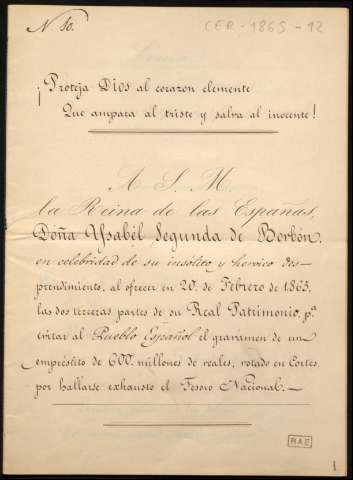 N. 10.
CER-1865-12
¡Proteja Dios al corazon clemente
Que ampara al triste y salva al inocente!
A. S. M.
la Reina de las Españas,
Doña Ysabél Segunda de Borbón,
en celebridad de su insólito y heroico des-
prendimiento, al ofrecer en 20 de Febrero de 1865,
las dos terceras partes de su Real Patrimonio, p.ª
evitar al Pueblo Español el gravámen de un
empréstito de 600 millones de reales, votado en Cortes
por hallarse exhausto el Tesoro Nacional.
RAE
1